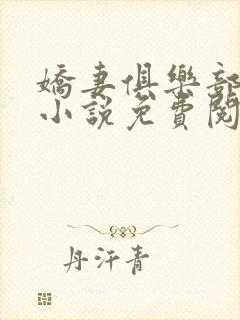 嬌妻俱樂部
小說免費閱
丹汗青